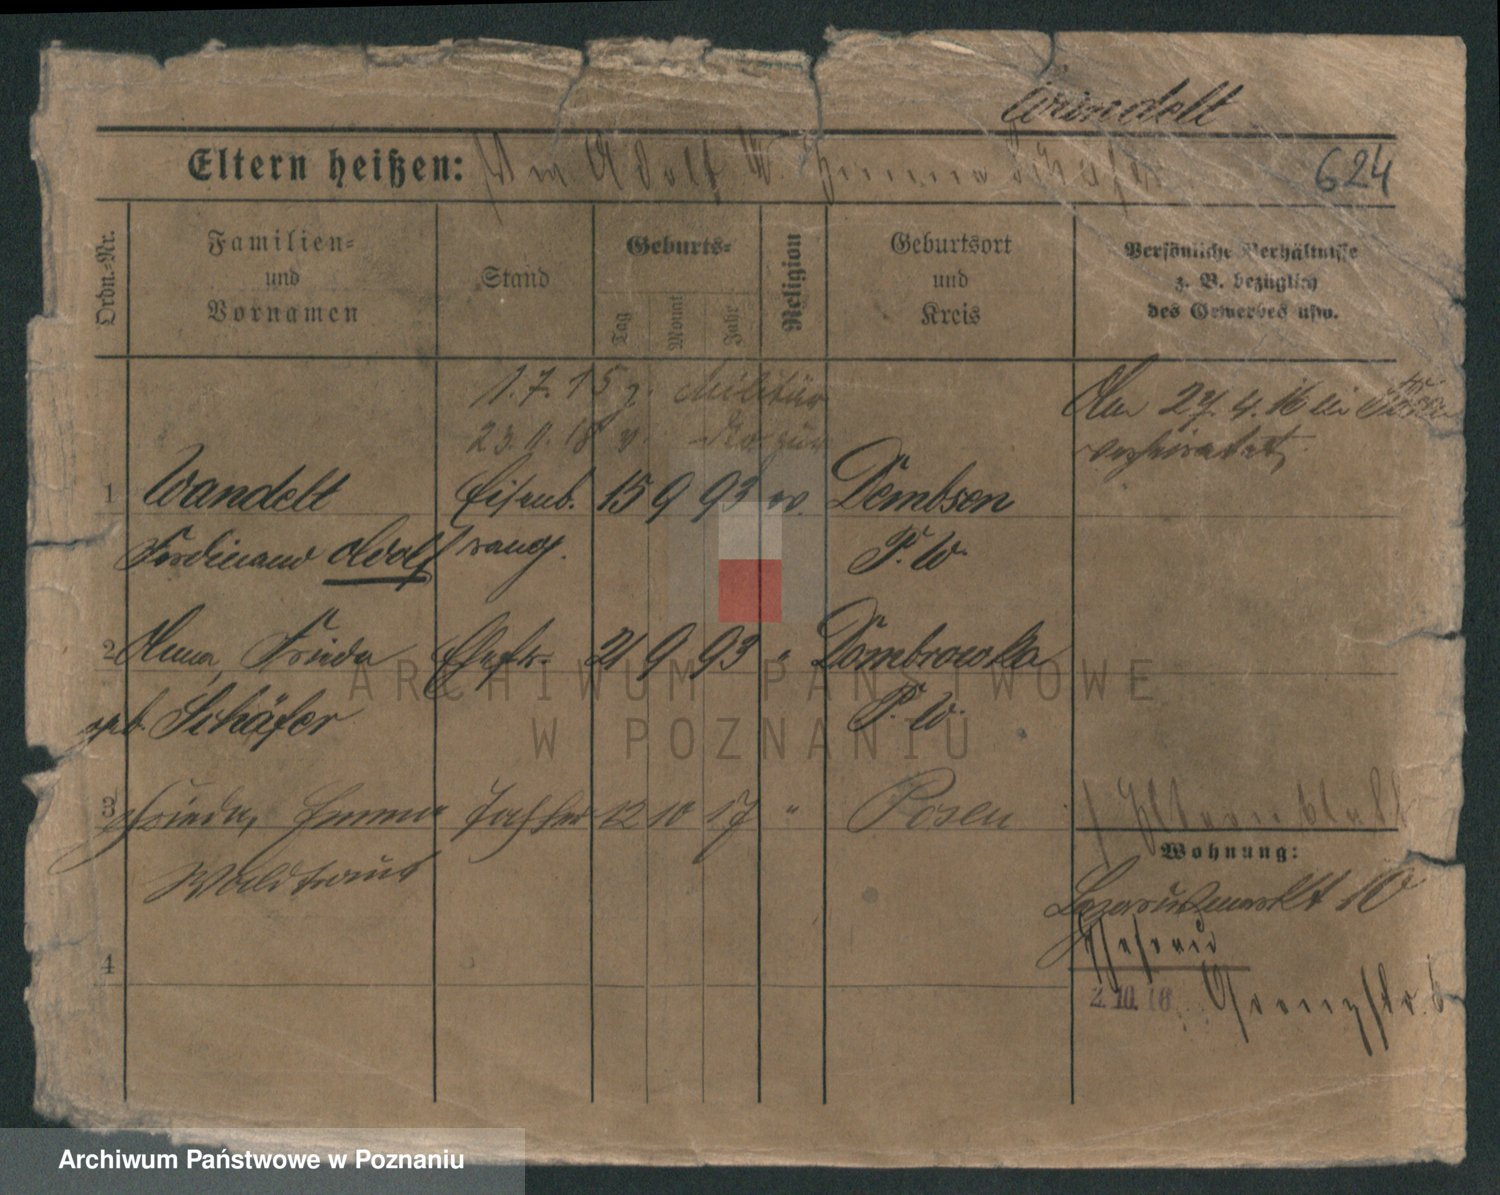 Wandelt
Eltern heißen: Adolf W. Schäfer
624
Ordn.-Nr.
Familien=
und
Vornamen
Stand
Geburts=
Tag
Monat
Jahr
Religion
Geburtsort
und
Kreis
Persönliche Verhältnisse
z. B. bezüglich
des Gewerbes usw.
1.7.15 z. Militär
23.11.18 v.
Am 27.4.16 in Posen
verheiratet
1 Wandelt Eisenb. 15 9 93 ev. Dembsen
Ferdinand Adolf rang. P. W.
2 Anna, Frieda Ehefr. 21 9 93 " Dombrowka
geb. Schäfer P. W.
3 Frieda, Emma Tochter 12 10 17 " Posen
Waldtraut
Elternblatt
Wohnung:
Lazarusmarkt 10
4
2.10.18 Grenzstr. 6
ARCHIWUM PAŃSTWOWE
W POZNANIU
Archiwum Państwowe w Poznaniu